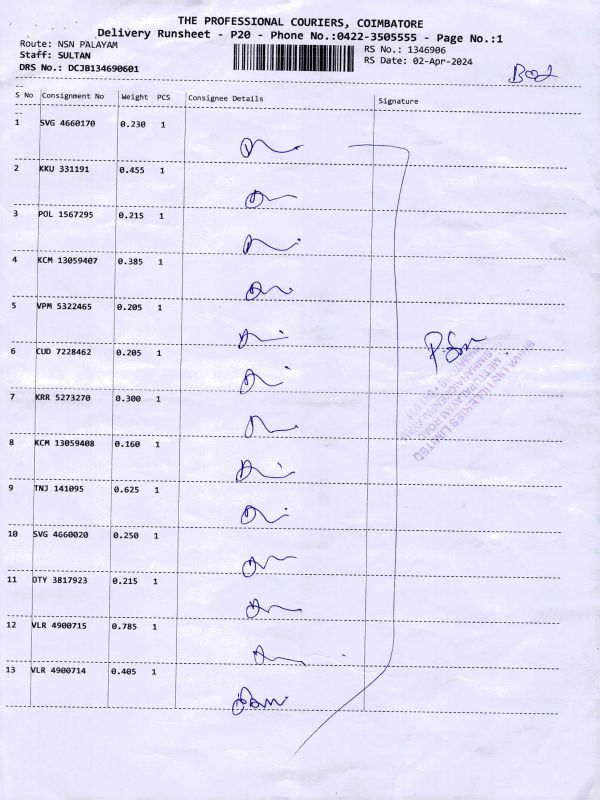 THE PROFESSIONAL COURIERS, COIMBATORE
Delivery Runsheet - P20 - Phone No.:0422-3505555 - Page No.:1
Route: NSN PALAYAM
RS No.: 1346906
Staff: SULTAN
RS Date: 02-Apr-2024
DRS No.: DCJB134690601
S No Consignment No Weight PCS Consignee Details Signature
1 SVG 4660170 0.230 1
2 KKU 331191 0.455 1
3 POL 1567295 0.215 1
4 KCM 13059407 0.385 1
5 VPM 5322465 0.205 1
6 CUD 7228462 0.205 1
7 KRR 5273270 0.300 1
8 KCM 13059408 0.160 1
9 TNJ 141095 0.625 1
10 SVG 4660020 0.250 1
11 OTY 3817923 0.215 1
12 VLR 4900715 0.785 1
13 VLR 4900714 0.405 1